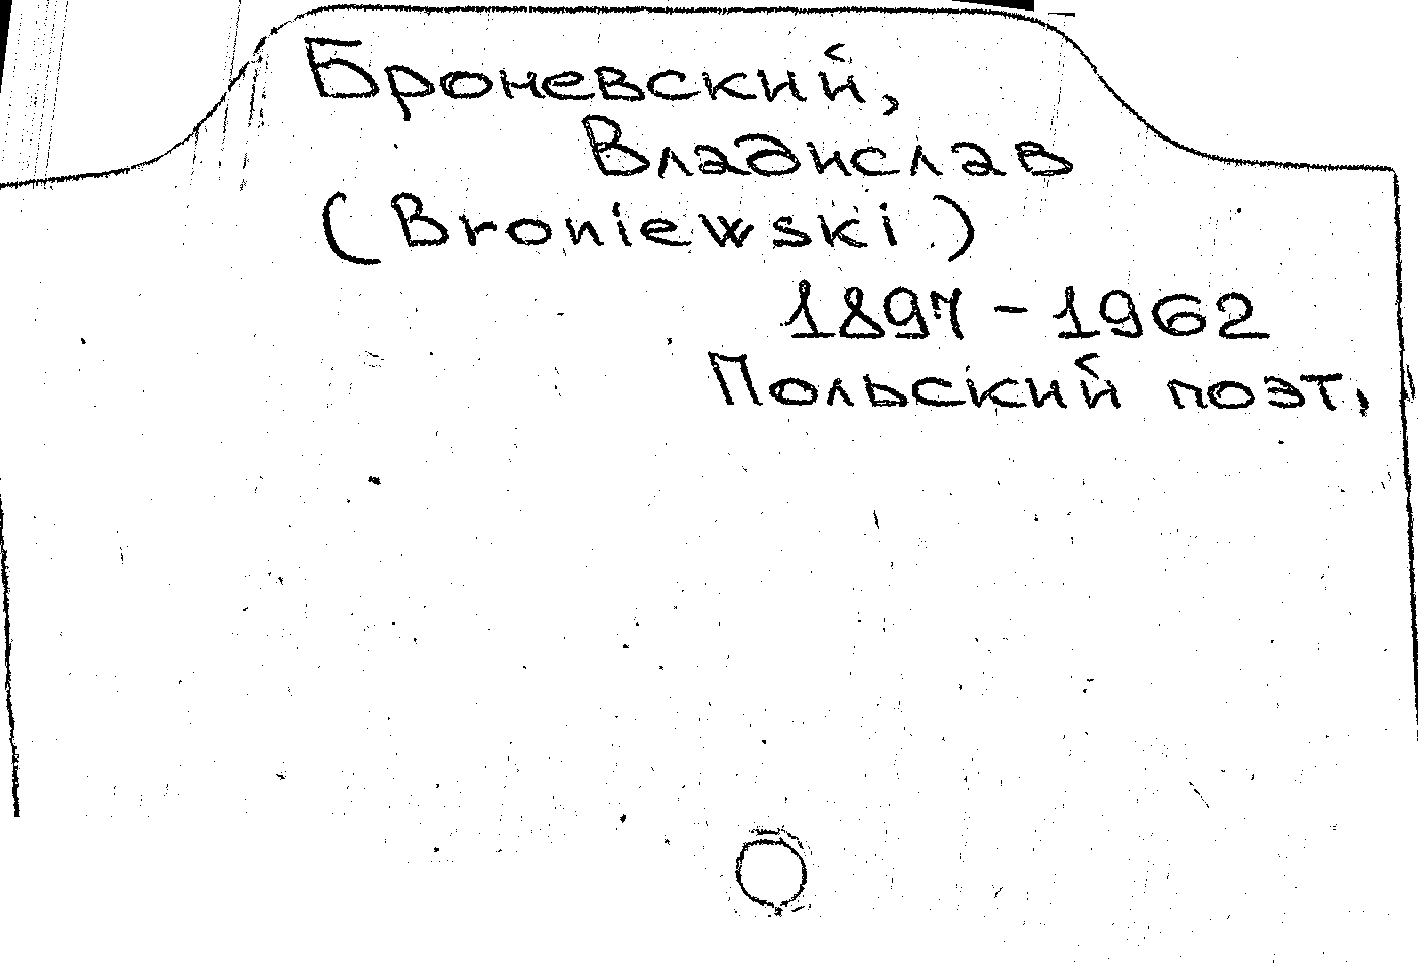 Броневский,
Владислав
(Broniewski)
1897-1962
Польский поэт.